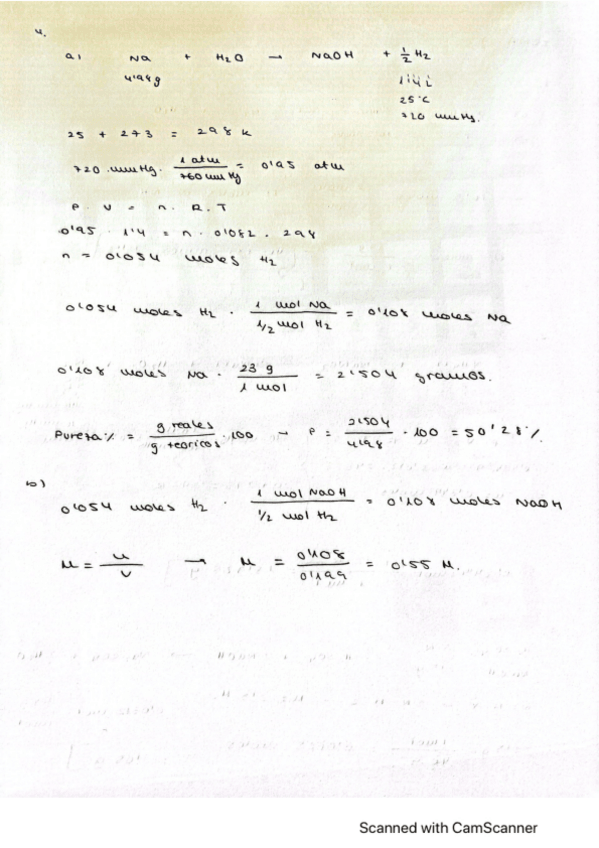 4.
a) Na + H2O → NaOH + 1/2 H2
4'98g 1'4L
25°C
720 mmHg.
25 + 273 = 298 K
720 mmHg · 1 atm / 760 mmHg = 0'95 atm
P · V = n · R · T
0'95 · 1'4 = n · 0'082 · 298
n = 0'054 moles H2
0'054 moles H2 · 1 mol Na / 1/2 mol H2 = 0'108 moles Na
0'108 moles Na · 23 g / 1 mol = 2'504 gramos.
Pureza % = g reales / g teoricos · 100 → P = 2'504 / 4'98 · 100 = 50'28 %.
b)
0'054 moles H2 · 1 mol NaOH / 1/2 mol H2 = 0'108 moles NaOH
M = n / V → M = 0'108 / 0'199 = 0'55 M.
Scanned with CamScanner